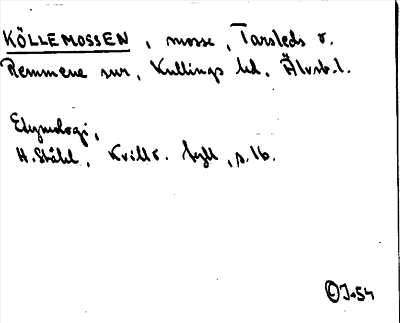 KÖLLEMOSSEN, mosse, Tarsleds o.
Remmene snr, Kullings hd, Älvsb.l.
Etymologi,
H. Ståhl, Kvill o. fyll, s. 16.